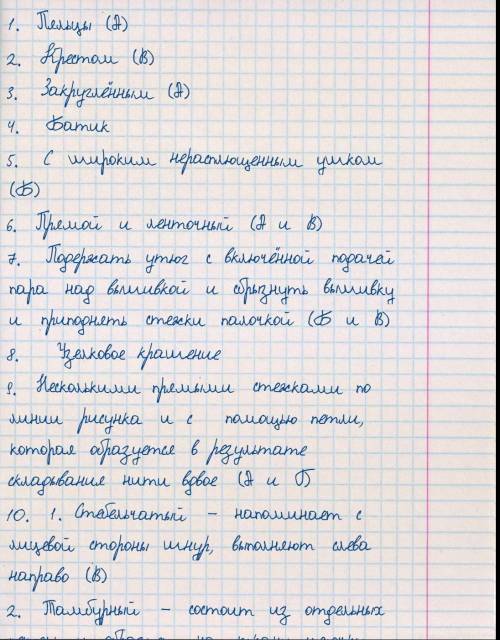 1. Пельцы (А)
2. Крестом (В)
3. Закруглённым (А)
4. Батик
5. С широким нерасплющенным ушком
(Б)
6. Прямой и ленточный (А и В)
7. Подержать утюг с включённой подачей
пара над вышивкой и сбрызнуть вышивку
и приподнять стежки палочкой (Б и В)
8. Узелковое крашение
9. Несколькими прямыми стежками по
линии рисунка и с помощью петли,
которая образуется в результате
складывания нити вдвое (А и Г)
10. 1. Стебельчатый – напоминает с
лицевой стороны шнур, выполняют слева
направо (В)
2. Тамбурный – состоит из отдельных